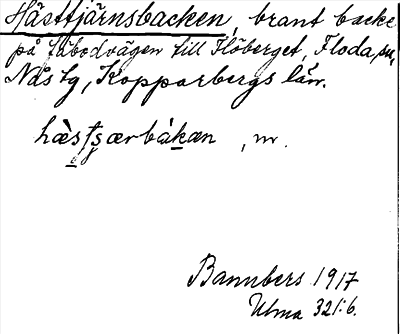 Hästtjärnsbacken, brant backe
på fäbodvägen till Flöberget, Floda sn,
Nås tg, Kopparbergs län.
hæ̀sʃsærbàkæn, m.
Bannbers 1917
Ulma 321:6.